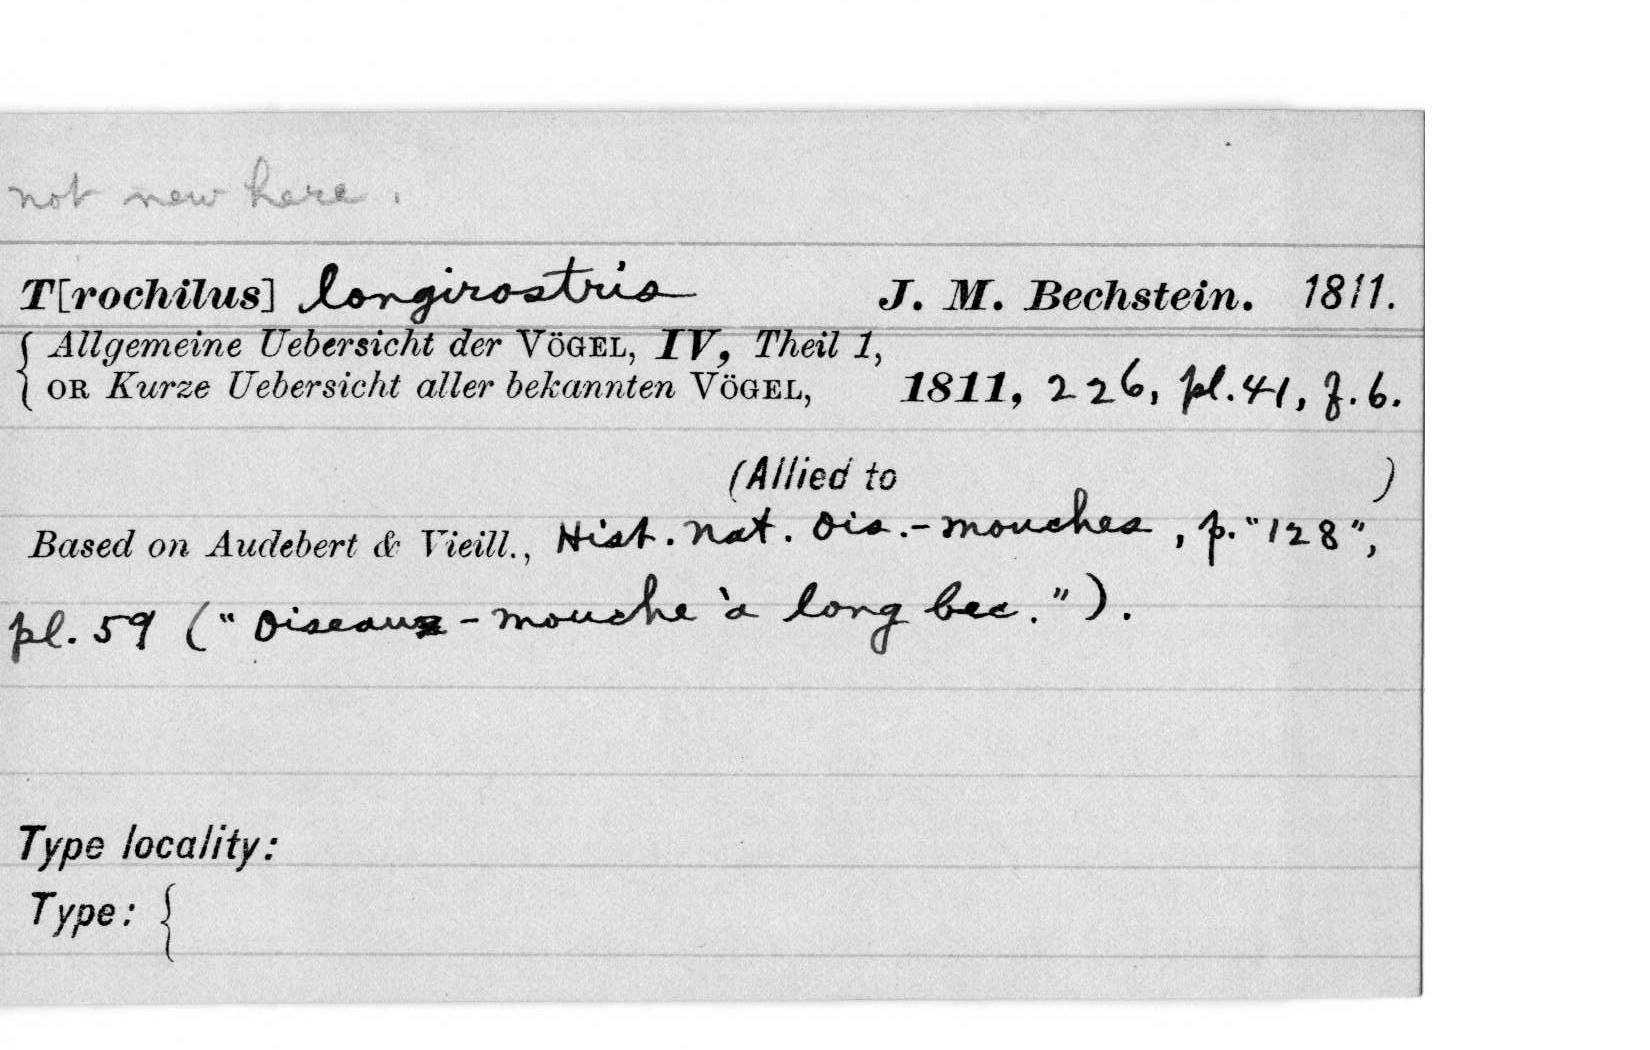 not new here.
T[rochilus] longirostris J. M. Bechstein. 1811.
{ Allgemeine Uebersicht der VÖGEL, IV, Theil 1,
OR Kurze Uebersicht aller bekannten VÖGEL, 1811, 226, pl. 41, f. 6.
(Allied to )
Based on Audebert & Vieill., Hist. Nat. Ois.-mouches, p. "128",
pl. 59 ("Oiseau-mouche à long bec.").
Type locality:
Type: {